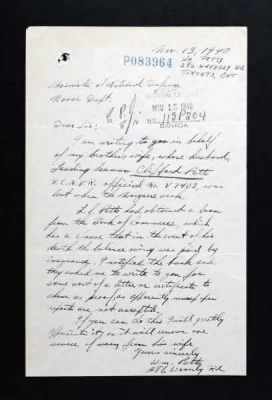 Nov. 13, 1940
Wm Petty
286 Waverly Rd.
TORONTO, ONT
P083964
Minister of National Defence
Naval Dept.
NOV 15 1940
No. 113P204
CANADA
Dear Sir:
I am writing to you in behalf
of my brother's wife, whose husband,
Leading Seaman Clifford Petty
R.C.N.V.R. official No. V 7933, was
lost when the Margaree sunk.
L.S. Petty had obtained a loan
from the Bank of Commerce, which
has a clause that in the event of his
death the balance owing was paid by
insurance. I notified the bank and
they asked me to write to you for
some sort of a letter or certificate to
show as proof, as apparently newspaper
reports are not accepted.
If you can do this I will greatly
appreciate it, as it will remove one
source of worry from his wife
Yours sincerely
Wm. Petty
286 Waverly Rd